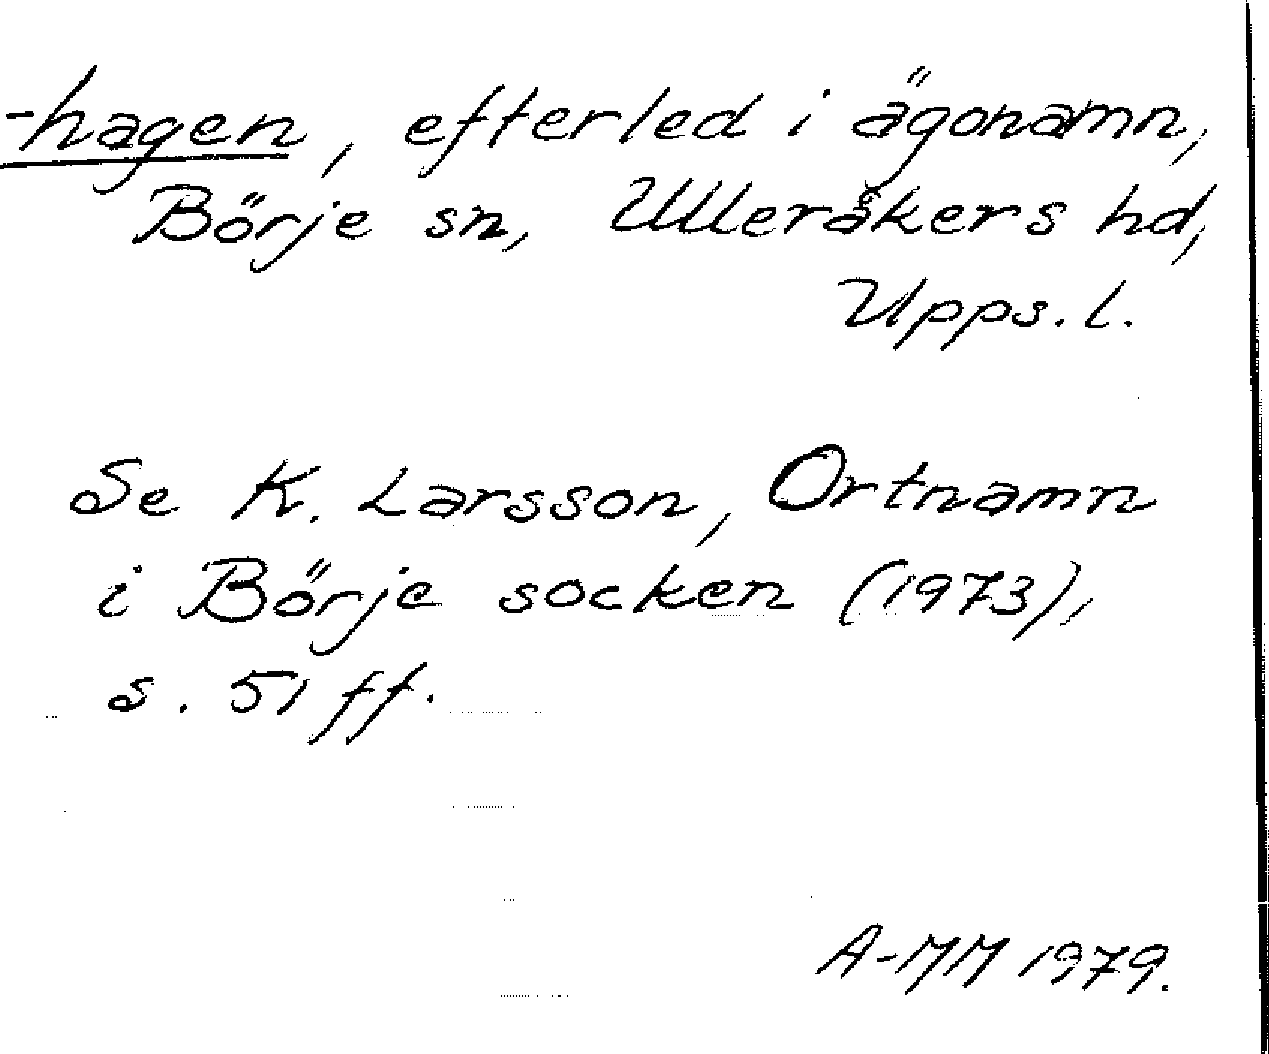 -hagen, efterled i ägonamn,
Börje sn, Ulleråkers hd,
Upps. l.
Se K. Larsson, Ortnamn
i Börje socken (1973),
s. 51 ff.
A-MM 1979.